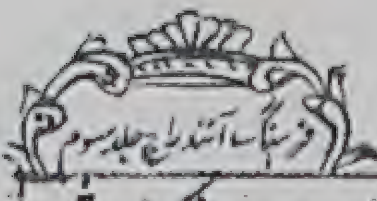 فرہنگ آنندراج جلد سوم